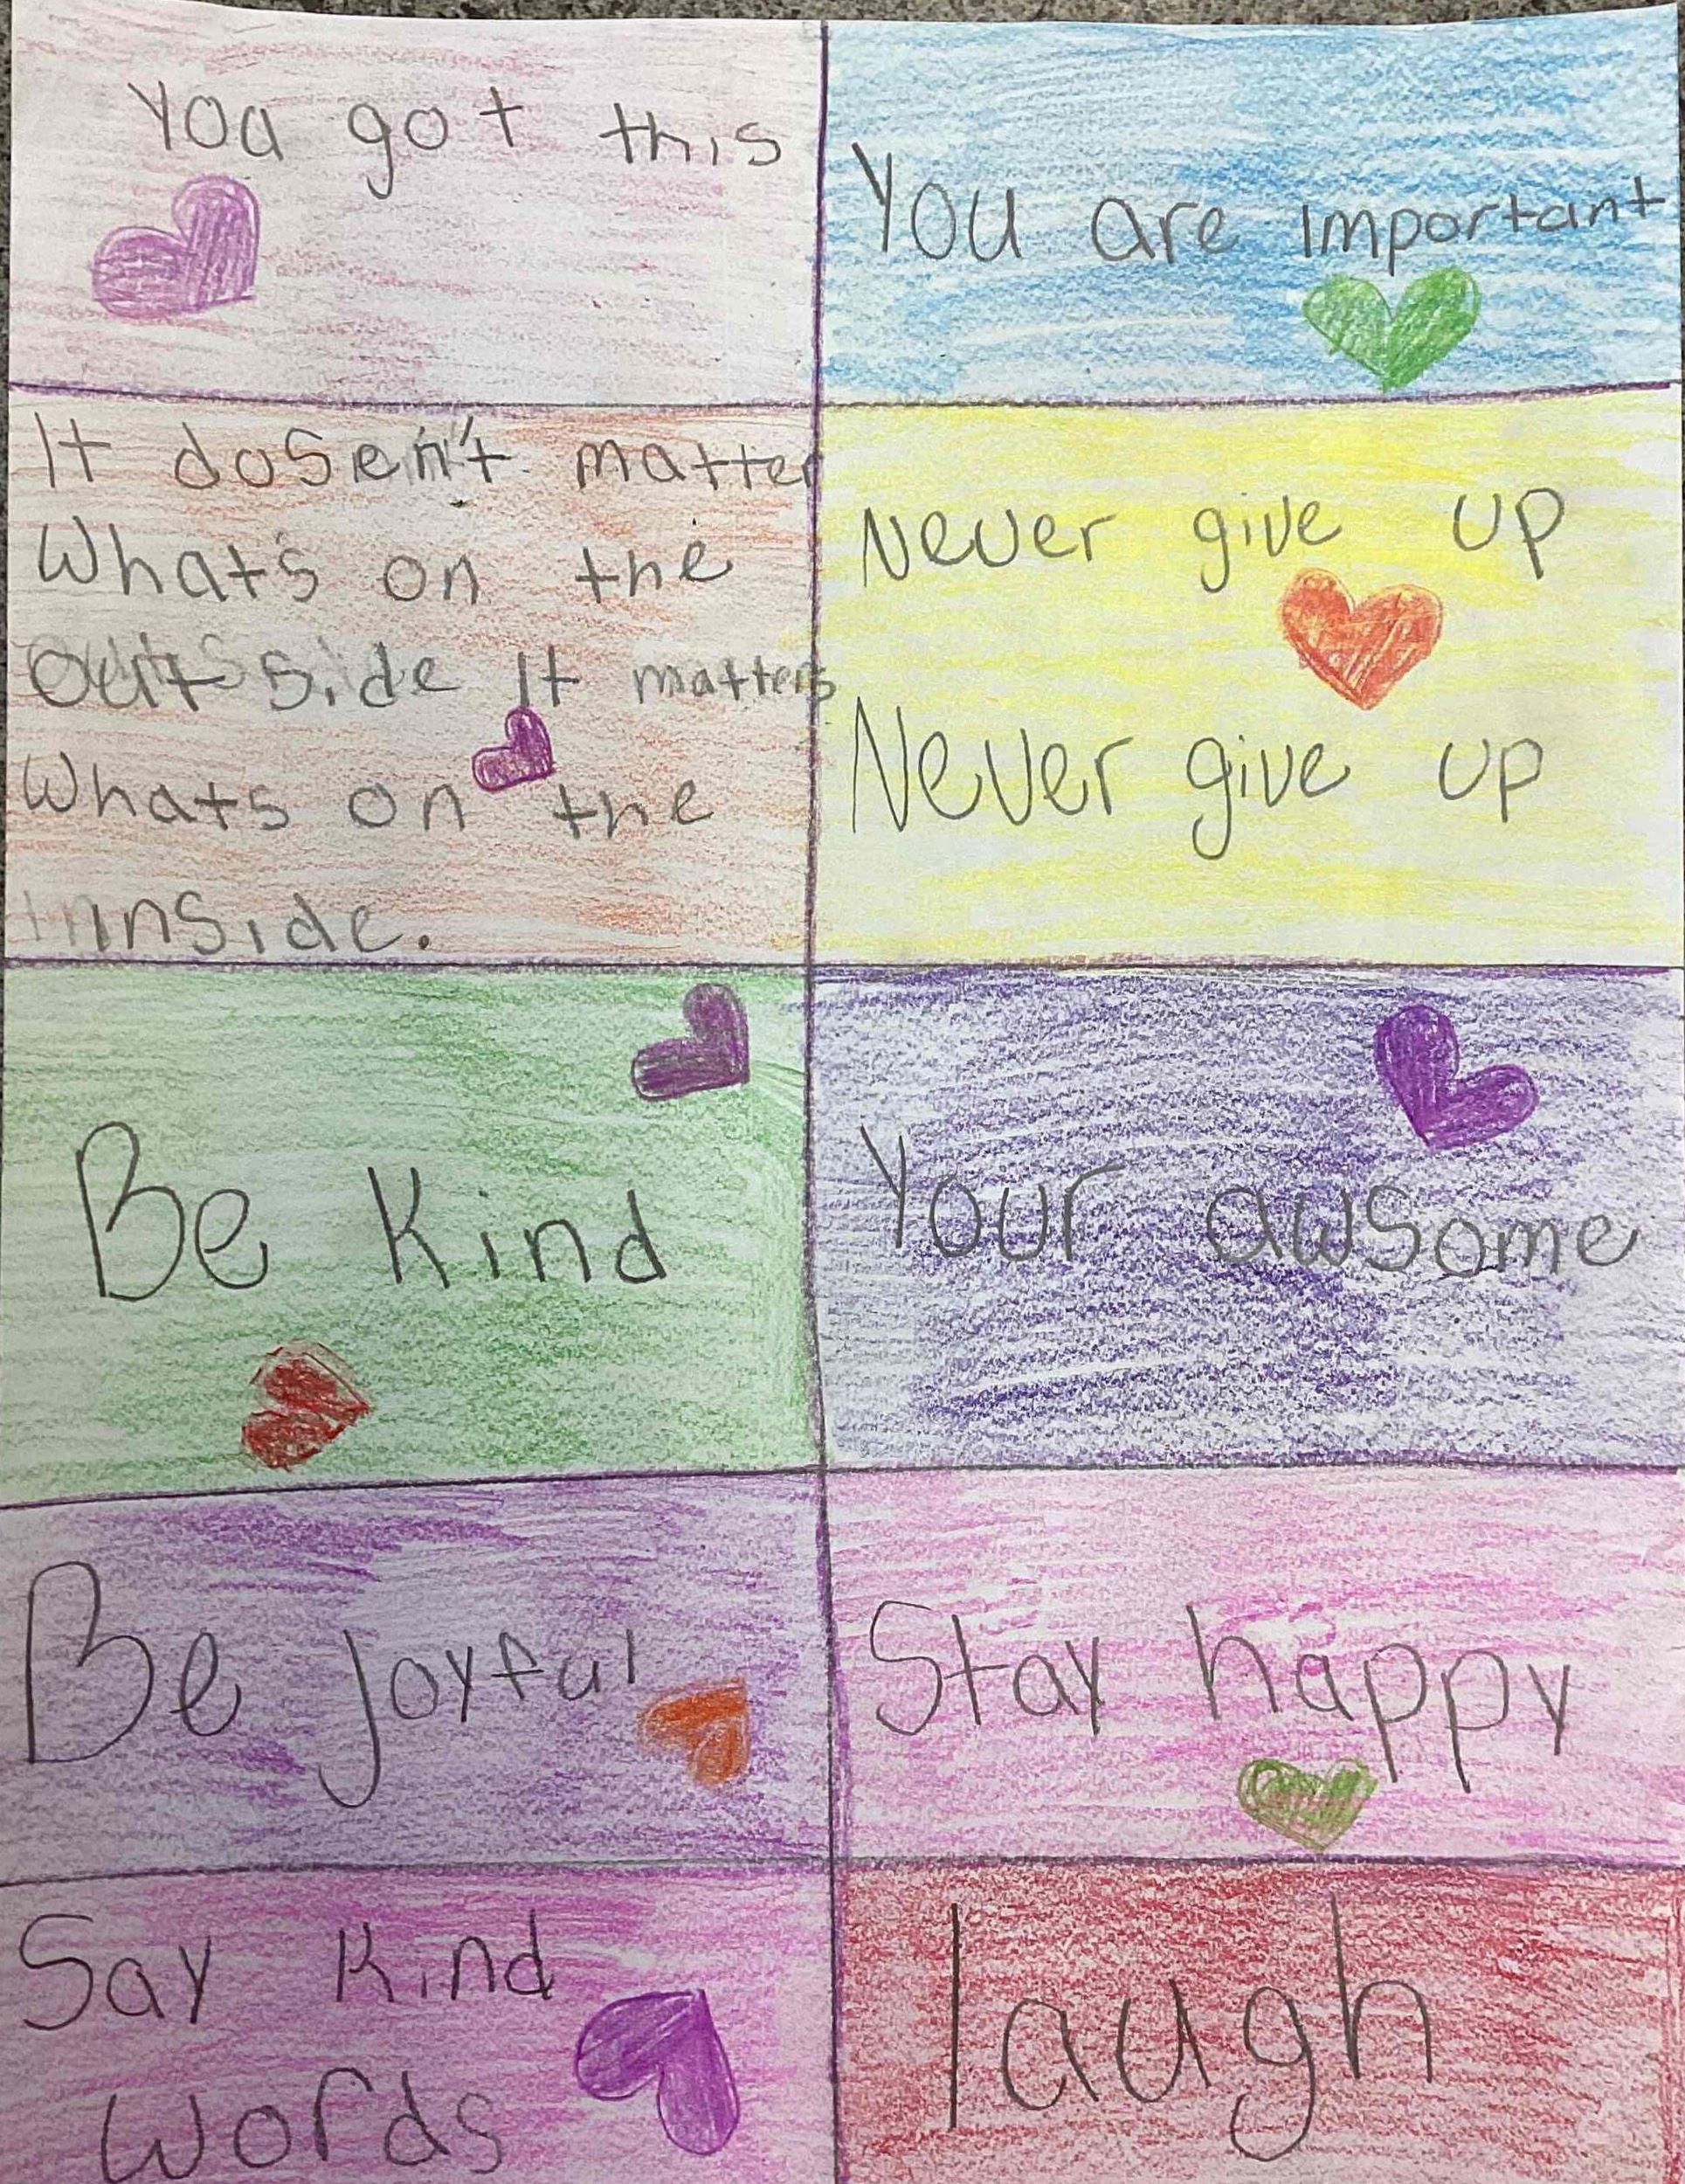 You got this
You are important
It dosen't matter
What's on the
outside It matters
Whats on the
inside.
Never give up
Never give up
Be Kind
Your awsome
Be joyful
Stay happy
Say Kind
words
laugh